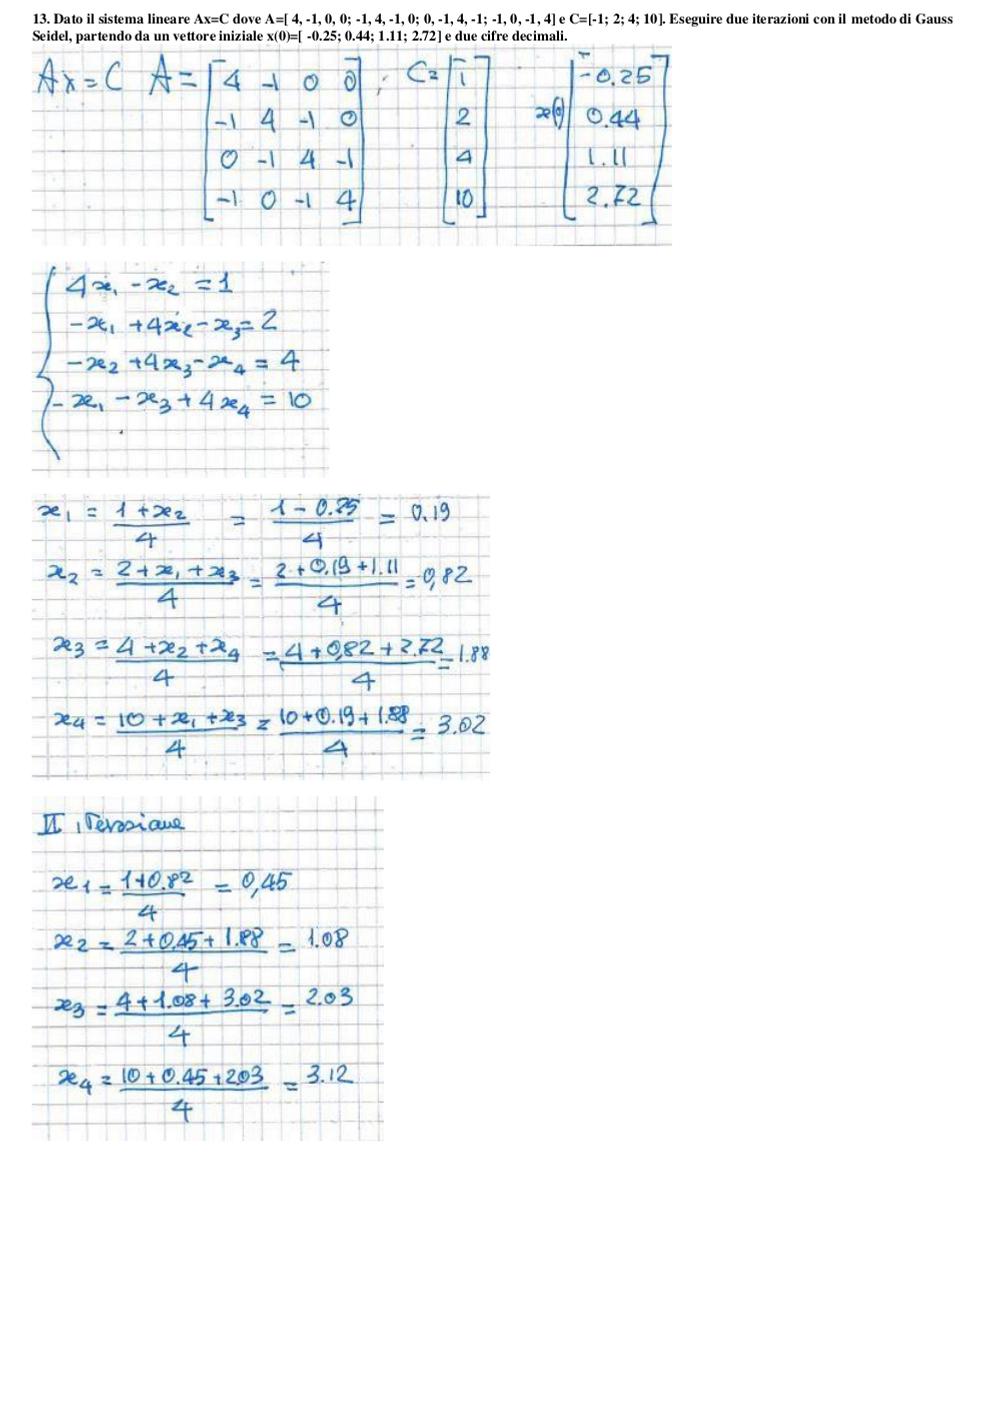 13. Dato il sistema lineare Ax=C dove A=[ 4, -1, 0, 0; -1, 4, -1, 0; 0, -1, 4, -1; -1, 0, -1, 4] e C=[-1; 2; 4; 10]. Eseguire due iterazioni con il metodo di Gauss
Seidel, partendo da un vettore iniziale x(0)=[ -0.25; 0.44; 1.11; 2.72] e due cifre decimali.
Ax=C A= 4 -1 0 0 ; C= 1 -0.25
-1 4 -1 0 2 x(0) 0.44
0 -1 4 -1 4 1.11
-1 0 -1 4 10 2.72
4x₁ - x₂ = 1
-x₁ + 4x₂ - x₃ = 2
-x₂ + 4x₃ - x₄ = 4
-x₁ - x₃ + 4x₄ = 10
x₁ = (1 + x₂)/4 = (1 - 0.25)/4 = 0.19
x₂ = (2 + x₁ + x₃)/4 = (2 + 0.19 + 1.11)/4 = 0,82
x₃ = (4 + x₂ + x₄)/4 = (4 + 0,82 + 2.72)/4 = 1.88
x₄ = (10 + x₁ + x₃)/4 = (10 + 0.19 + 1.88)/4 = 3.02
II iterazione
x₁ = (1+0.82)/4 = 0,45
x₂ = (2 + 0.45 + 1.88)/4 = 1.08
x₃ = (4 + 1.08 + 3.02)/4 = 2.03
x₄ = (10 + 0.45 + 2.03)/4 = 3.12